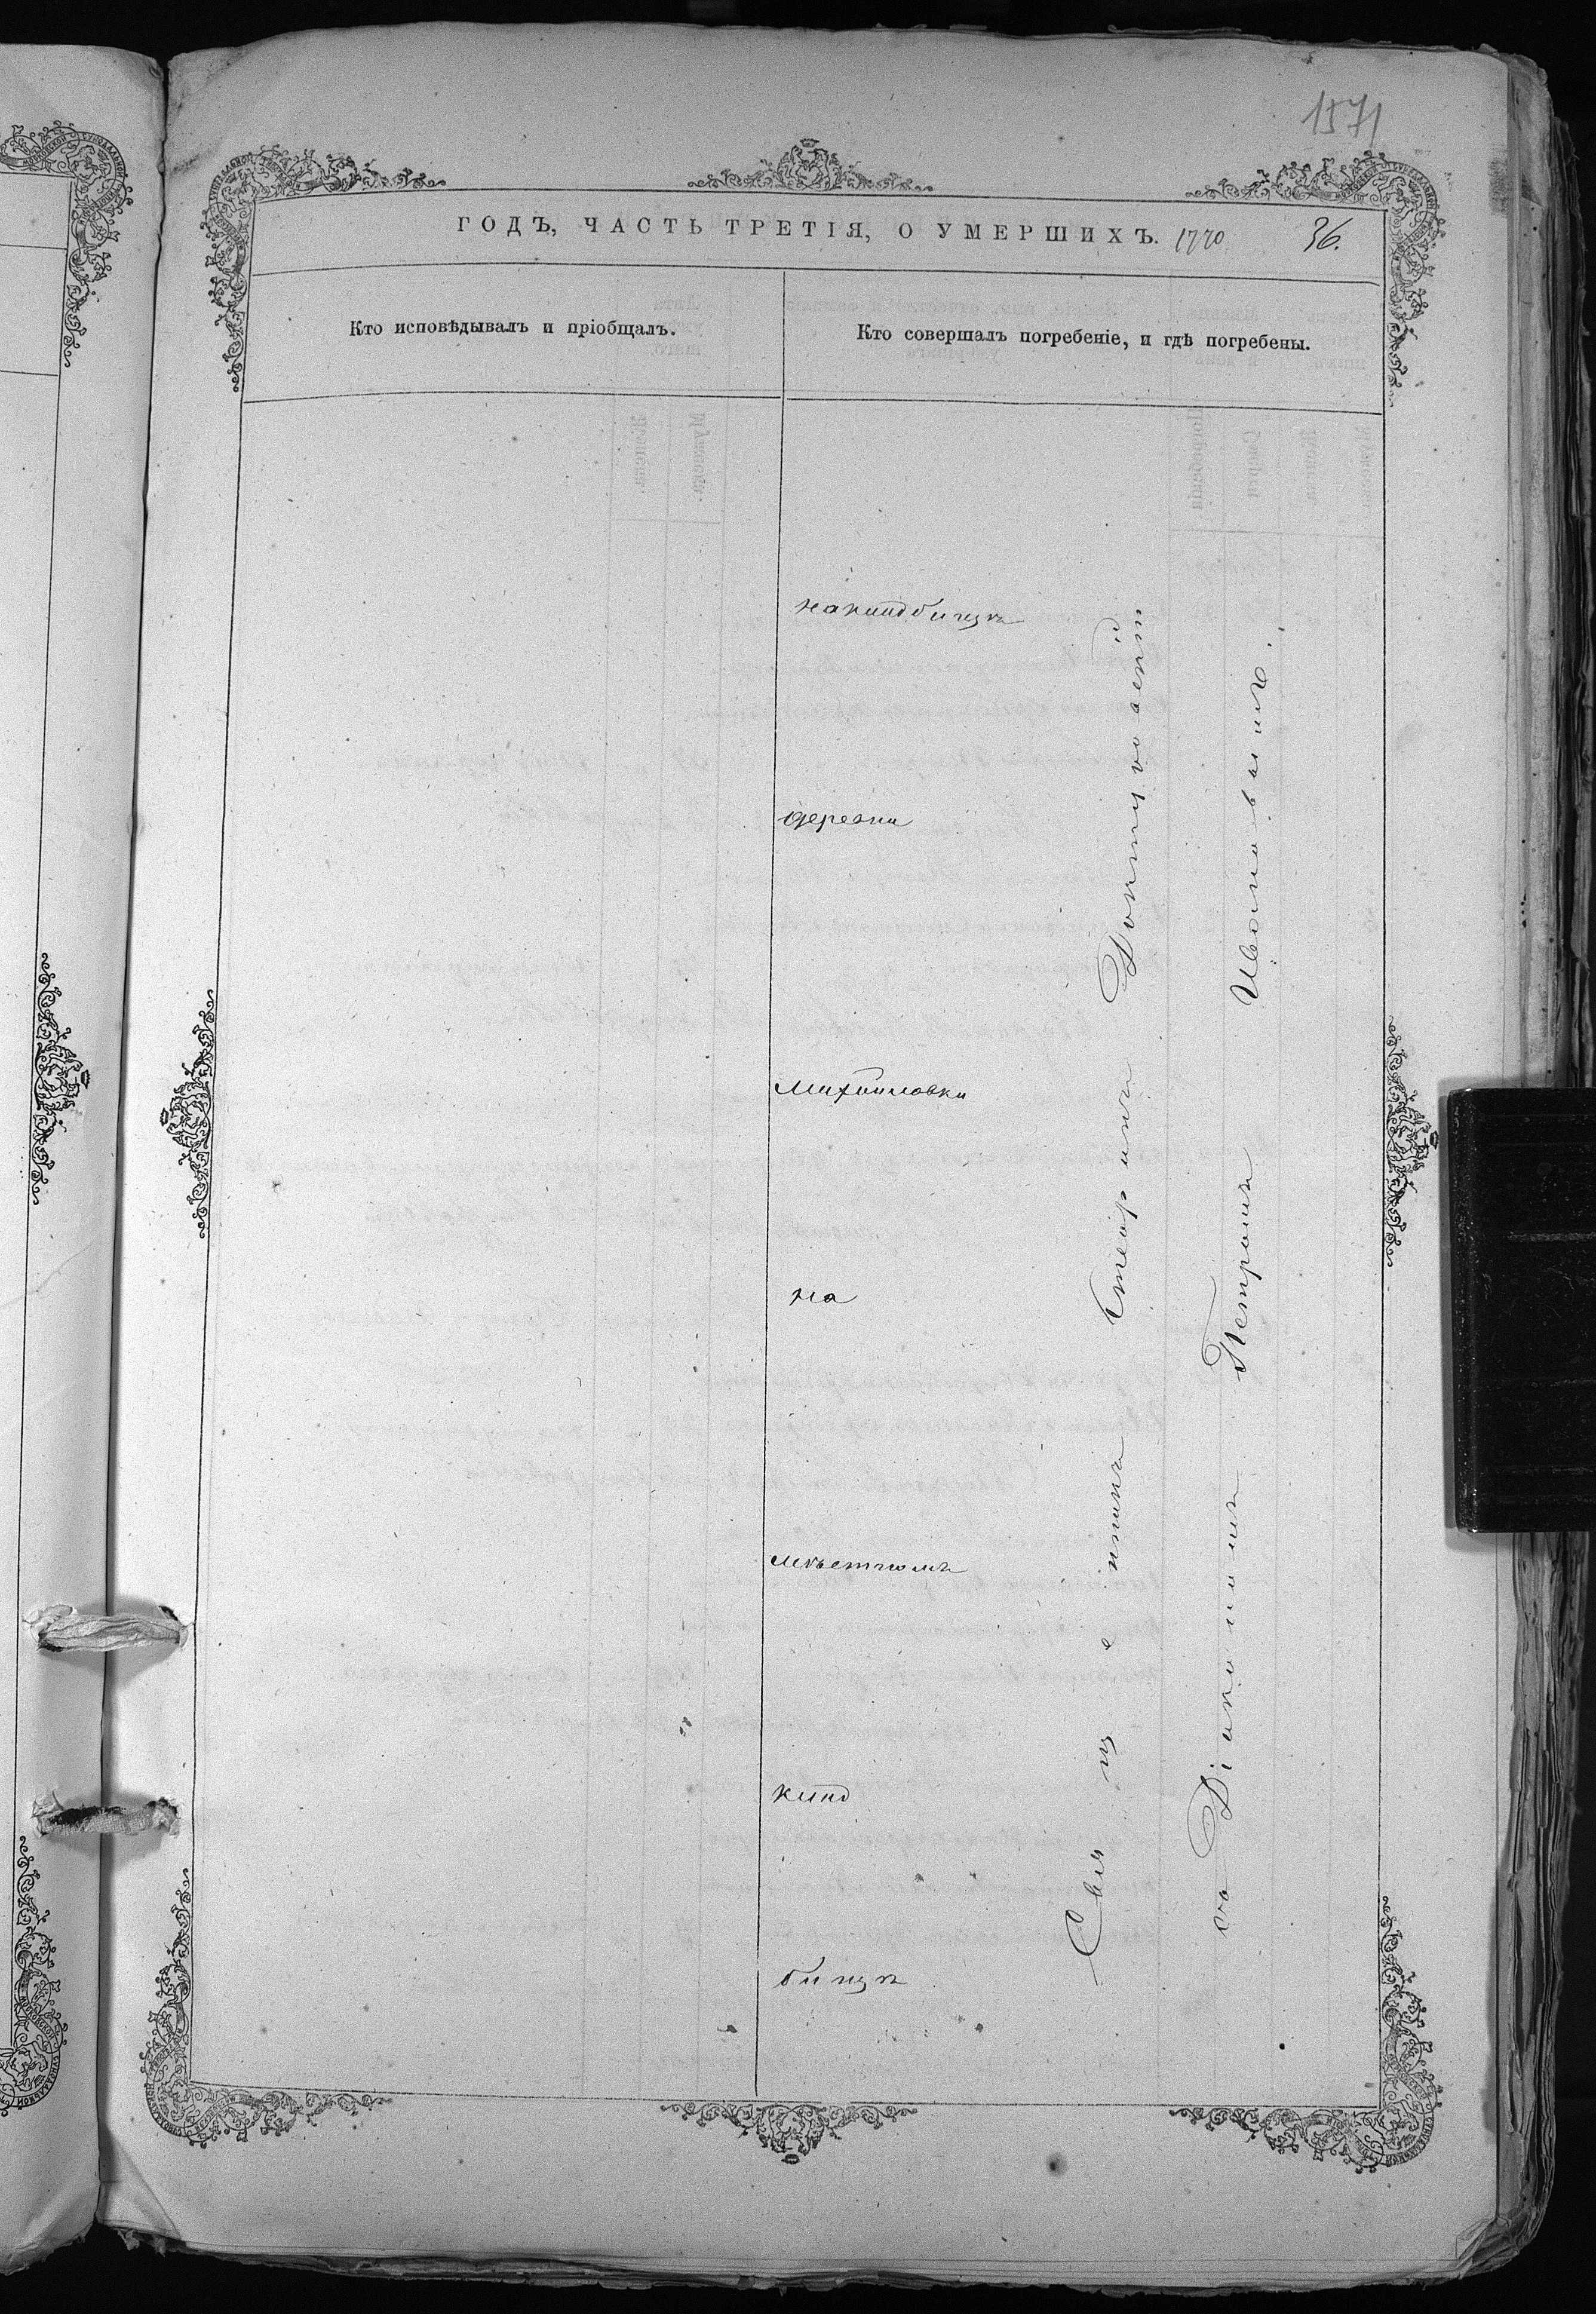 1571
ГОДЪ, ЧАСТЬ ТРЕТІЯ, О УМЕРШИХЪ.
36.
Кто исповѣдывалъ и пріобщалъ.
Кто совершалъ погребеніе, и гдѣ погребены.
на кладбищѣ
деревни
Михайловки
на
мѣстномъ
клад
бищѣ
Священникъ
съ Діакономъ Петромъ Ивановымъ.